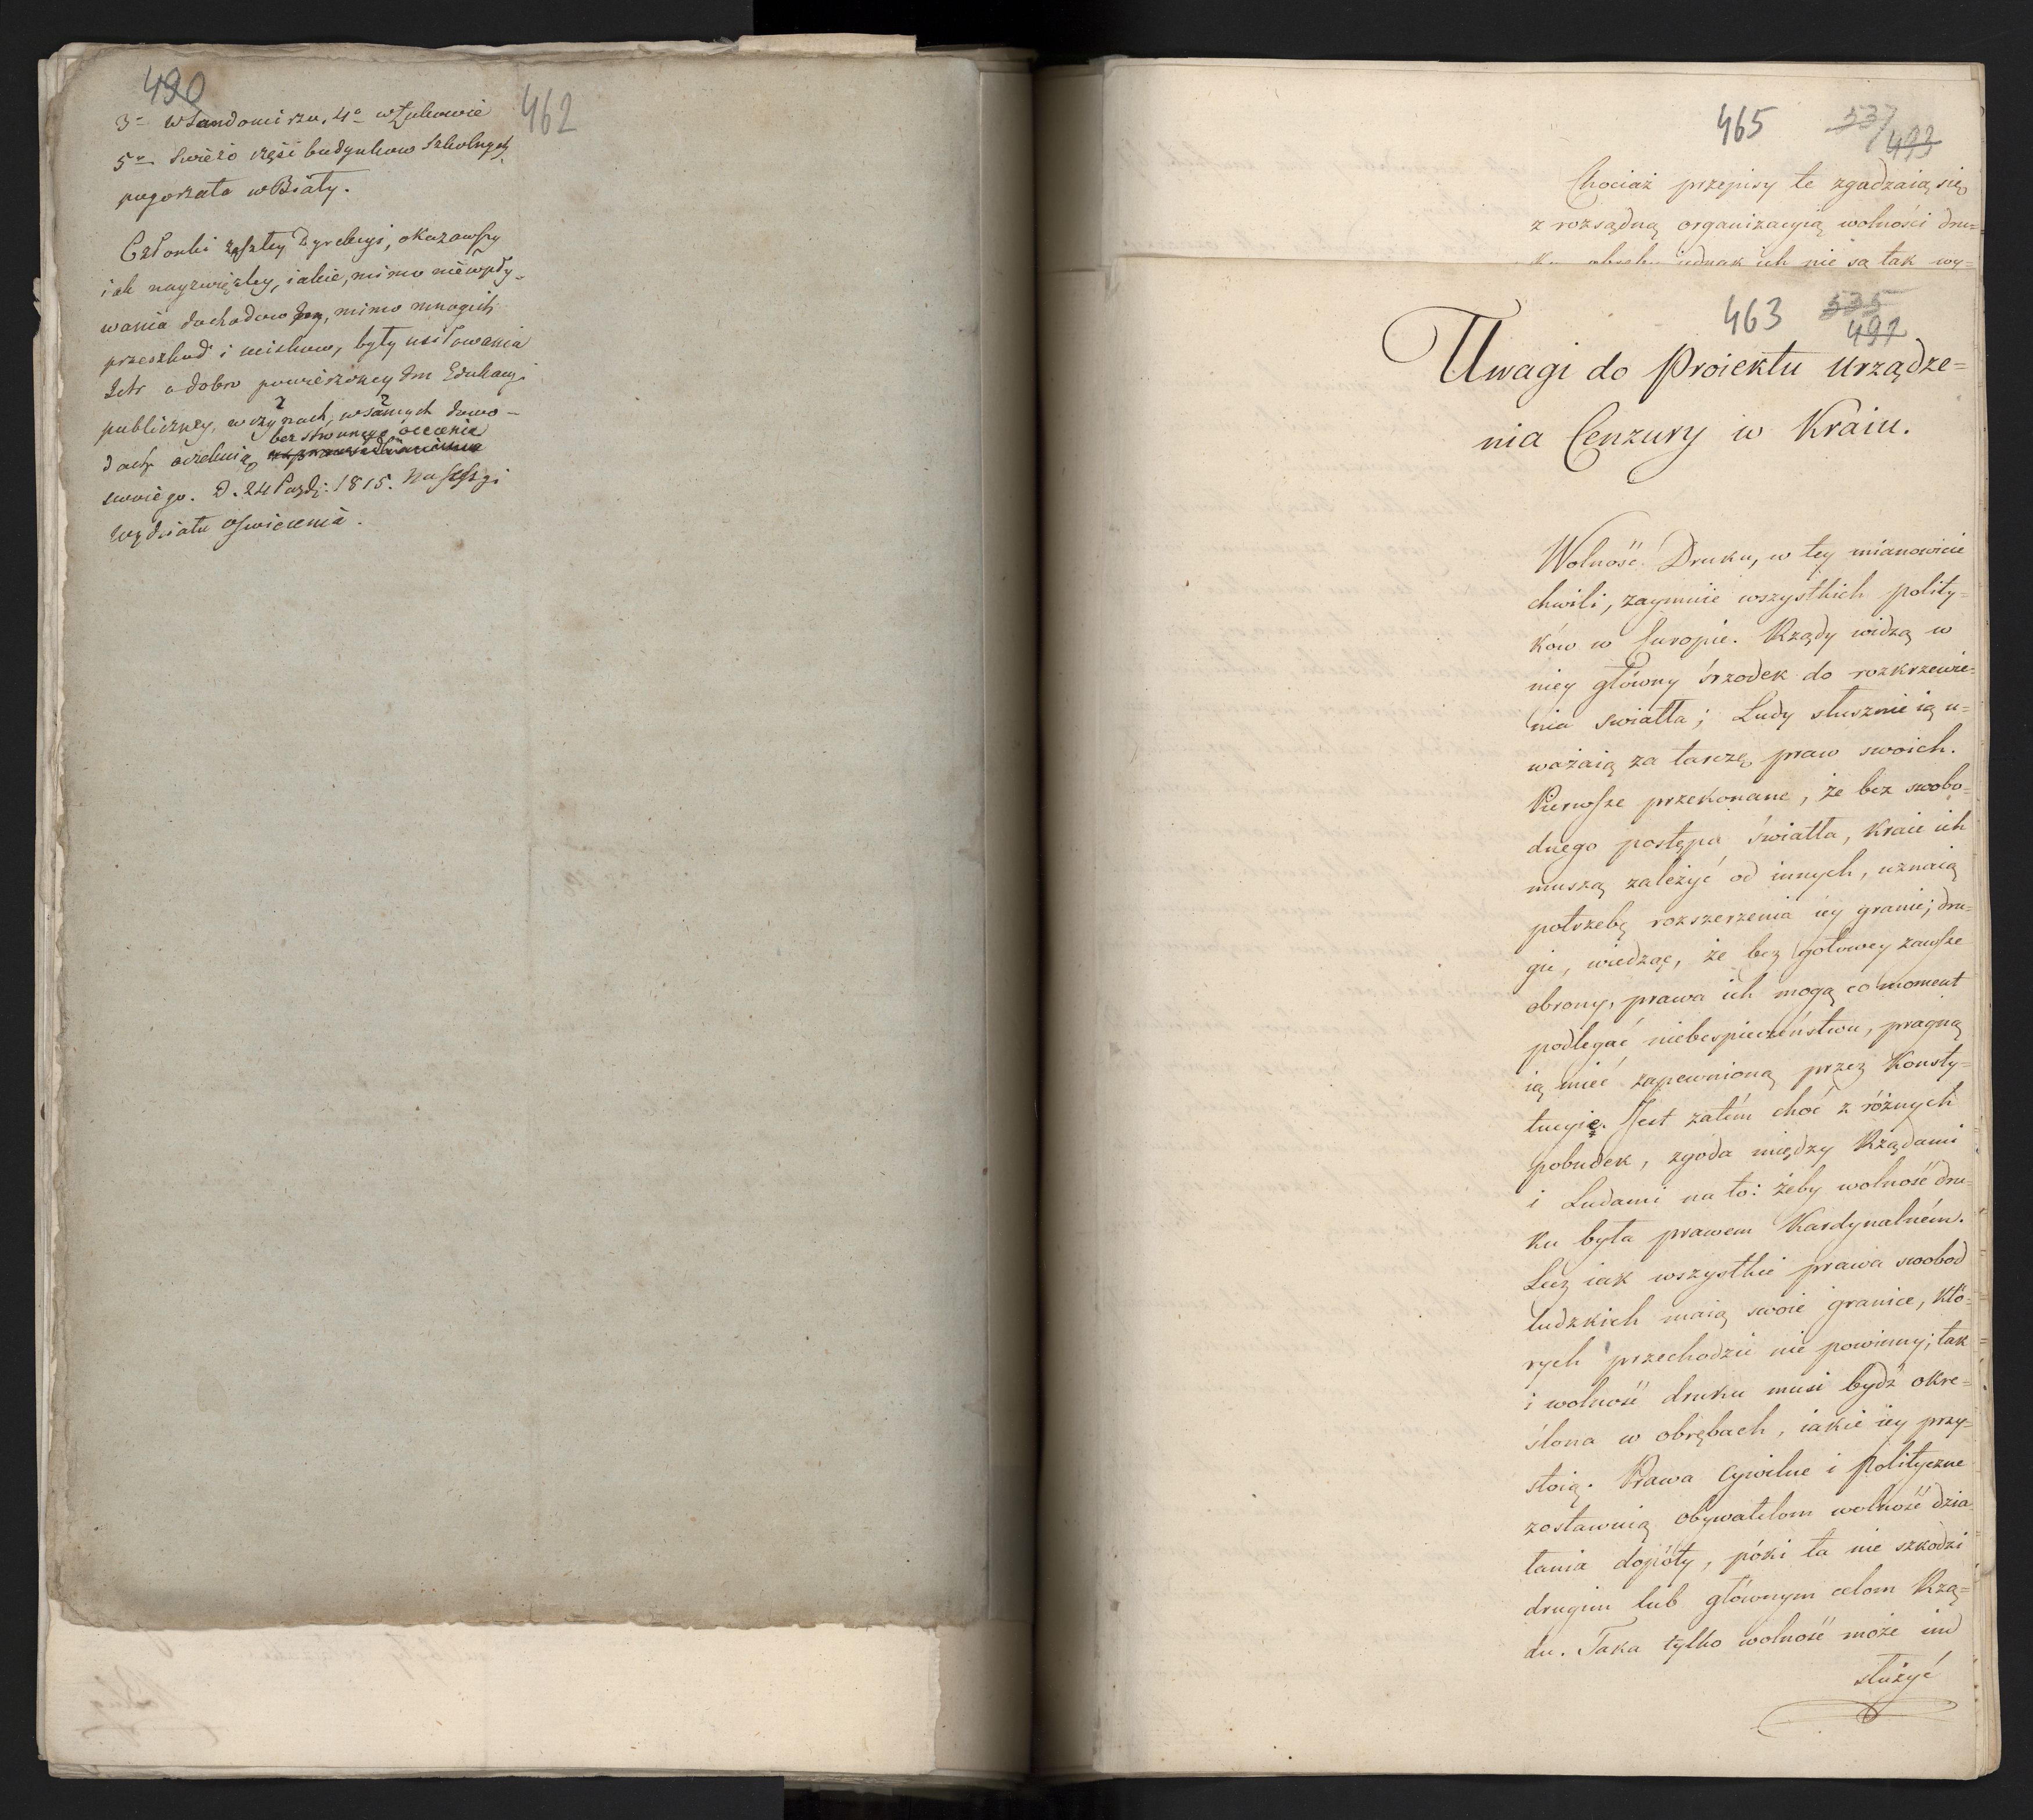 490
462
3o w Sandomirzu, 4o w Łukowie
5o Swieżo część budynkow szkolnych
pogorzała w Biały.
Członki zeszłey Dyrekcyi, okazawszy
iak nayzwięźley, iakie, mimo niewpły-
wania dochodow, mimo mnogich
przeszkod i uciskow, były usiłowania
Ich o dobro powierzoney Im Edukacyi
publiczney, w czynach, w samych dowo-
dach oczekuią bezstronnego ocenienia
swoiego. D. 24 Paźdz: 1815. Na Sessyi
Wydziału Oswiecenia.
465 537
493
Chociaż przepisy te zgadzaią się
z rozsądną organizacyią wolności dru=
ku, obrębu iednak ich nie są tak wy=
463 535
491
Uwagi do Proiektu urządze=
nia Cenzury w Kraiu.
Wolność Druku, w tey mianowicie
chwili, zaymuie wszystkich polity=
ków w Europie. Rządy widzą w
niey główny śrzodek do rozkrzewie=
nia swiatła; Ludy słusznie ią u=
ważaią za tarczę praw swoich.
Pierwsze przekonane, że bez swobo=
dnego postępu światła, kraie ich
muszą zależyć od innych, uznaią
potrzebę rozszerzenia iey granic; dru=
gie, wiedząc, że bez gotowey zawsze
obrony, prawa ich mogą co moment
podlegać niebespieczeństwu, pragną
ią mieć zapewnioną przez Konsty=
tucyię. Jest zatém choć z różnych
pobudek, zgoda między Rządami
i Ludami na to: żeby wolność dru=
ku była prawem Kardynalném.
Lecz iak wszystkie prawa swobod
ludzkich maią swoie granice, któ=
rych przechodzić nie powinny; tak
i wolność druku musi bydź okre=
ślona w obrębach, iakie iey przy=
stoią. Prawa Cywilne i Polityczne
zostawuią Obywatelom wolność dzia
łania dopóty, póki ta nie szkodzi
drugim lub głównym celom Rzą=
du. Taka tylko wolność może im
służyć